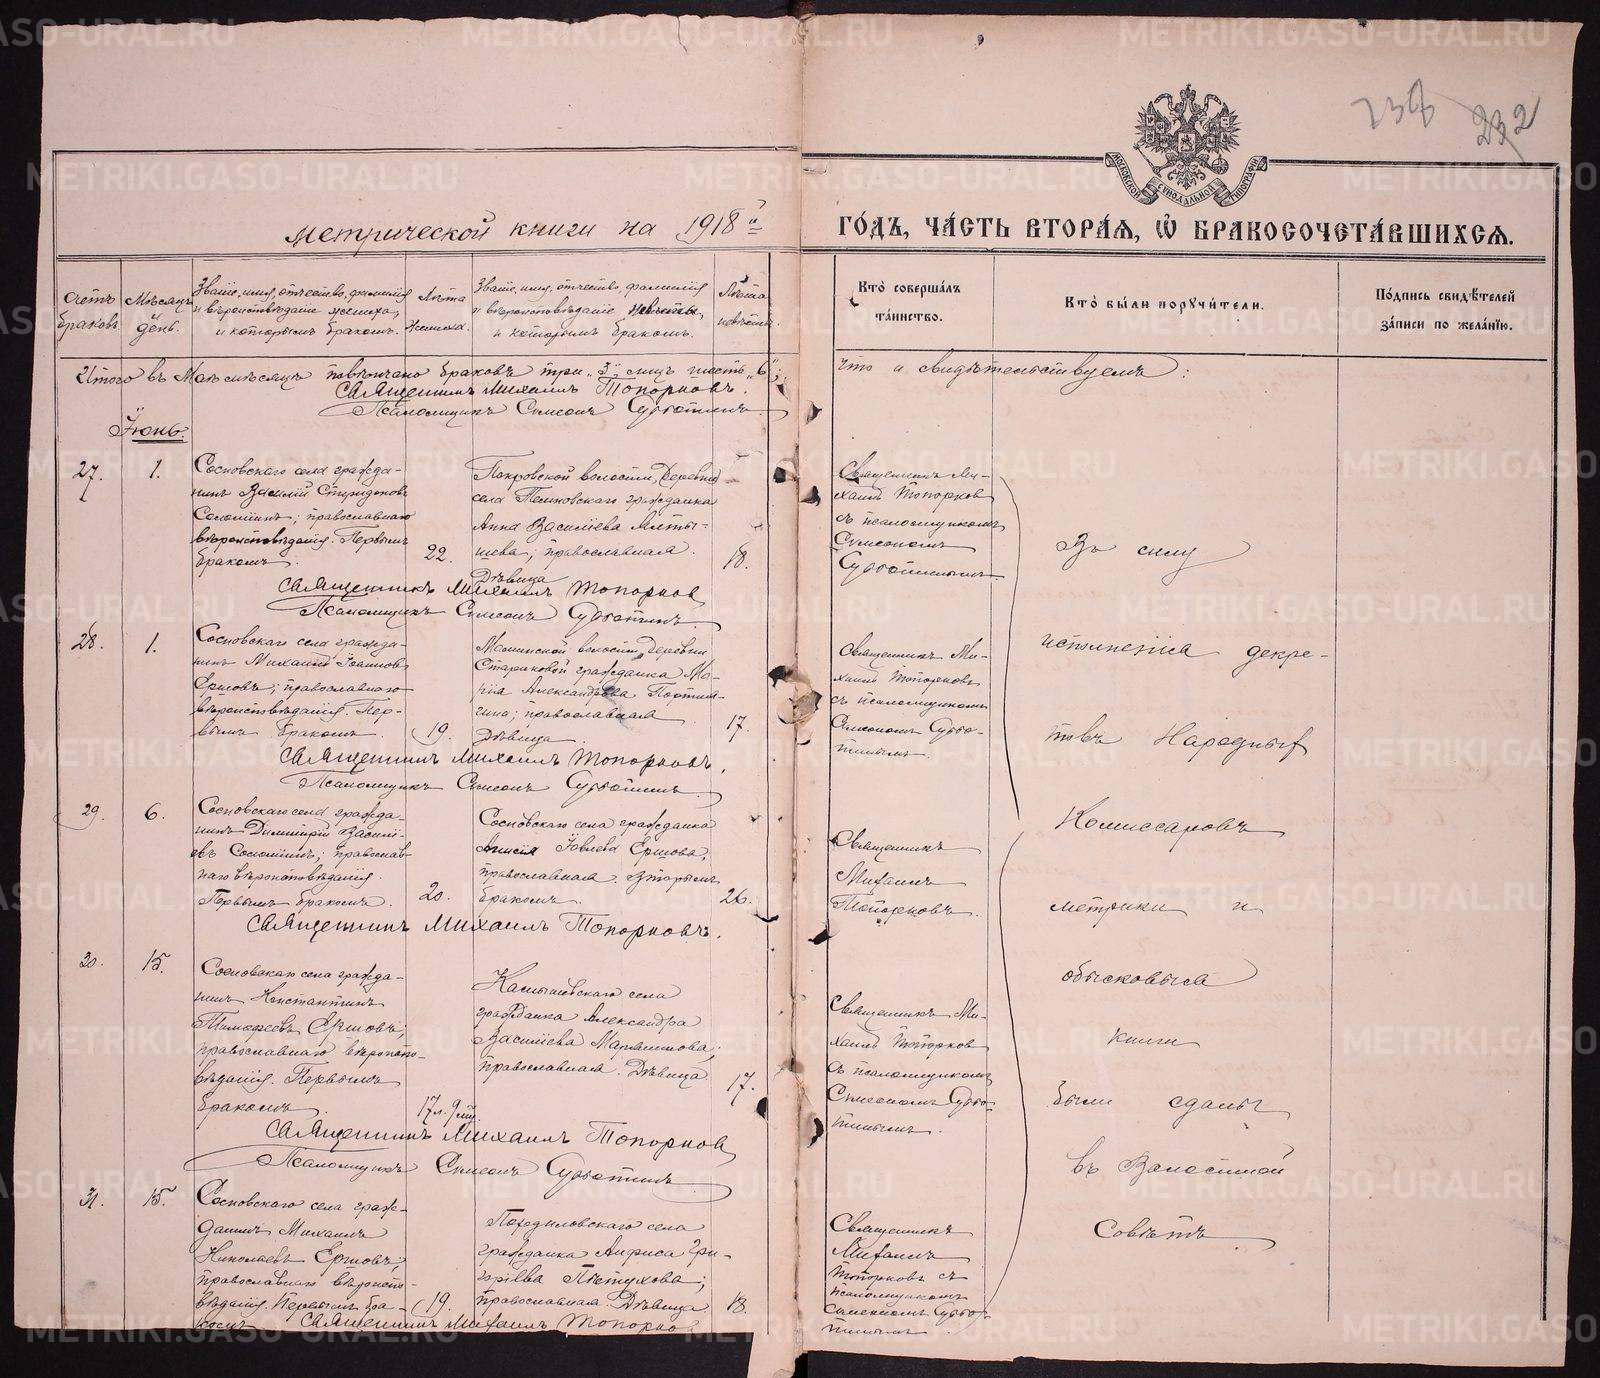 238
232
МОСКОВСКОЙ СѴНОДАЛЬНОЙ ТИПОГРАФІИ
метрической книги на 1918й
ГО́ДЪ, ЧА́СТЬ ВТОРА́Я, Ѡ҆ БРАКОСОЧЕТА́ВШИХСЯ.
Счетъ браковъ.
Мѣсяцъ и день.
Званіе, имя, отчество, фамилія
и вѣроисповѣданіе жениха,
и которымъ бракомъ.
Лѣта
жениха.
Званіе, имя, отчество, фамилія
и вѣроисповѣданіе невѣсты,
и которымъ бракомъ.
Лѣта
невѣсты.
Кто̀ соверша́лъ
та́инство.
Кто̀ бы́ли порꙋчи́тели.
По́дпись свидѣ́телей
за́писи по жела́нїю.
Итого въ Маѣ мѣсяцѣ повѣнчано браковъ три „3“, лицъ шесть „6“,
что и свидѣтельствуемъ:
Священникъ Михаилъ Топорковъ.
Псаломщикъ Симеонъ Субботинъ
Іюнь.
27.
1.
Сосновскаго села гражда-
нинъ Василій Спиридоновъ
Соломинъ; православнаго
вѣроисповѣданія. Первымъ
бракомъ.
22.
Покровской волости, деревни
села
гражданка
Анна Василіева
шева; православная.
Дѣвица
18.
Священникъ Ми-
хаилъ Топорковъ
съ псаломщикомъ
Симеономъ
Субботинымъ.
Священникъ Михаилъ Топорковъ
Псаломщикъ Симеонъ Субботинъ.
28.
1.
Сосновскаго села гражда-
нинъ Михаилъ Іоанновъ
Ершовъ; православнаго
вѣроисповѣданія. Пер-
вымъ бракомъ.
19.
Маминской волости, деревни
Стариковой гражданка Ма-
рія Александрова
православная
Дѣвица.
17.
Священникъ Ми-
хаилъ Топорковъ
съ псаломщикомъ
Симеономъ Суббо-
тинымъ.
Священникъ Михаилъ Топорковъ.
Псаломщикъ Симеонъ Субботинъ.
29.
6.
Сосновскаго села гражда-
нинъ Димитрій Василі-
евъ Соломинъ; православ-
наго вѣроисповѣданія.
Первымъ бракомъ.
20.
Сосновскаго села гражданка
Анисія Іовлева Ершова;
православная. Вторымъ
бракомъ.
26.
Священникъ
Михаилъ
Топорковъ.
Священникъ Михаилъ Топорковъ.
30.
15.
Сосновскаго села гражда-
нинъ Константинъ
Тимофеевъ Ершовъ;
православнаго вѣроиспо-
вѣданія. Первымъ
бракомъ.
17 л. 9 мц.
Камышевскаго села
гражданка Александра
Василіева
православная. Дѣвица.
17.
Священникъ Ми-
хаилъ Топорковъ
съ псаломщикомъ
Симеономъ Суббо-
тинымъ.
Священникъ Михаилъ Топорковъ
Псаломщикъ Симеонъ Субботинъ.
31.
15.
Сосновскаго села граж-
данинъ Михаилъ
Николаевъ Ершовъ;
православнаго вѣроиспо-
вѣданія. Первымъ бра-
комъ
19.
села
гражданка Анфиса Гри-
горіева Пѣтухова;
православная. Дѣвица
18.
Священникъ
Михаилъ
Топорковъ съ
псаломщикомъ
Симеономъ Суббо-
тинымъ.
Священникъ Михаилъ Топорковъ
Въ силу
исполненія декре-
товъ Народныхъ
Комиссаровъ
метрики и
обысковыя
книги
были сданы
въ Волостной
Совѣтъ.
METRIKI.GASO-URAL.RU